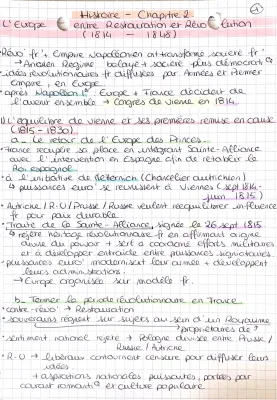 Histoire - Chapitre 2
L'Europe entre Restauration et Révolution
(1814 - 1848)
Révo° fr + Empire Napoléonien ont transformé société fr
→ Ancien Régime balayé + société plus démocratiq
idées révolutionnaires fr diffusées par Armées et Premier
Empire, en Europe
après Napoléon Ier : Europe + France décident de
l'avenir ensemble → Congrès de Vienne en 1814.
L'équilibre de Vienne et ses premières remise en cause
(1815 - 1830)
a_ Le retour de l'Europe des Princes
France récupère sa place en intégrant Sainte-Alliance
avec l'intervention en Espagne afin de rétablir le
Roi espagnol.
à l'initiative de Metternich (Chancelier autrichien)
↳ puissances euro° se réunissent à Vienne (sept 1814 -
juin 1815)
Autriche / R-U / Prusse / Russie veulent rééquilibrer influence
fr pour paix durable
Traité de la Sainte-Alliance, signée le 26 sept 1815
↳ rejère héritage révolutionnaire fr en affirmant origine
divine du pouvoir + sert à coordonner efforts militaires
et à développer entraide entre puissances signataires.
puissances euro° modernisent leur armée + développent
leurs administrations.
→ Europe organisée sur modèle fr.
b_ Fermer la période révolutionnaire en France
contre-révo° → Restauration
souverains règnent sur sujets au sein d'un Royaume
→ propriétaires de
sentiment national rejeté → Pologne divisée entre Prusse /
Russie / Autriche
R-U → libéraux contournent censure pour diffuser leurs
idées
+ aspirations nationales puissantes, portées par
courant romantiq et culture populaire